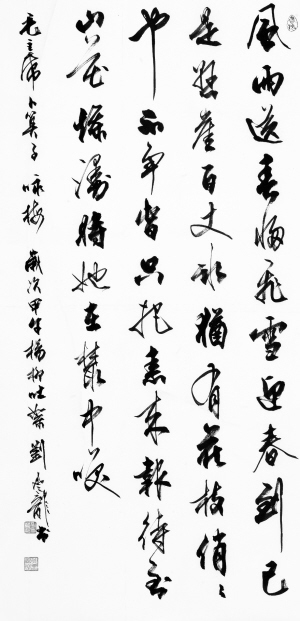 風雨送春歸飛雪迎春到已
是懸崖百丈冰猶有花枝俏〻
也不争春只把春来報待到
山花爛漫時她在叢中笑
毛主席卜算子咏梅 歲次甲午楊柳吐翠 劉龍书